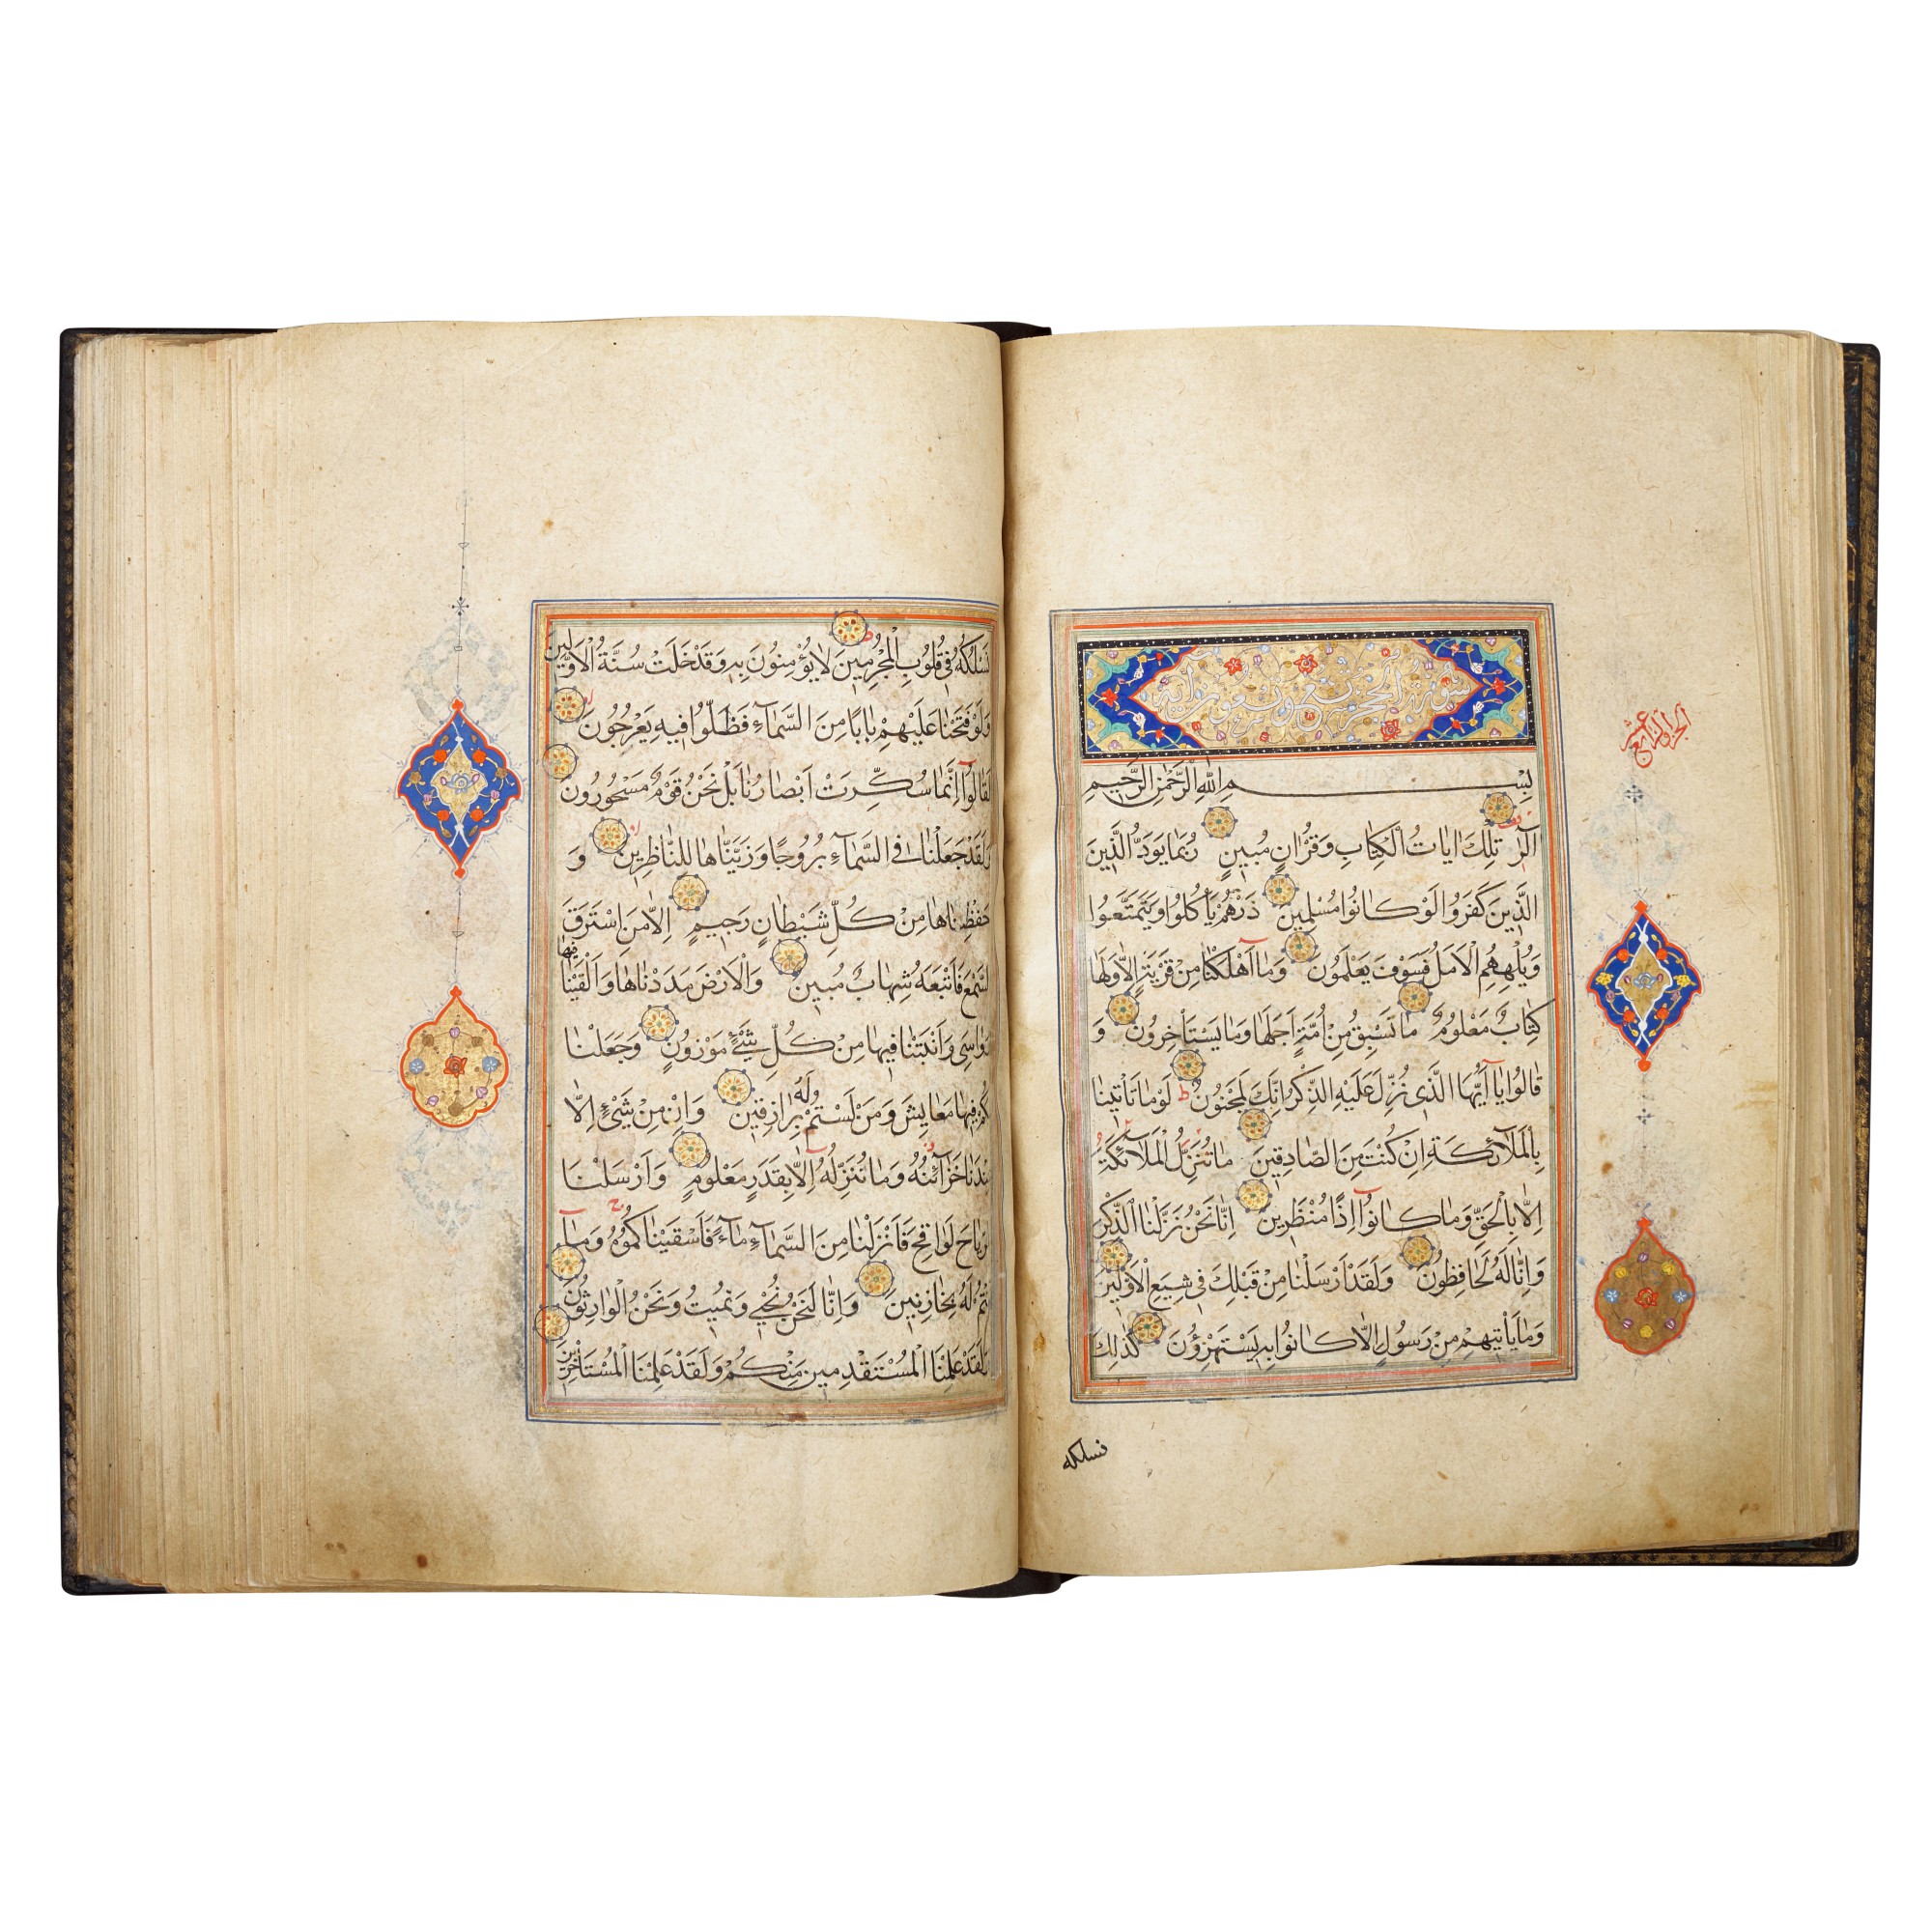 سورة الحجر تسع وتسعون اية
الجزء الرابع عشر
بِسْمِ اللّٰهِ الرَّحْمٰنِ الرَّحِيمِ
الٓرٰ تِلْكَ اٰيَاتُ الْكِتَابِ وَقُرْاٰنٍ مُبِينٍ رُبَمَا يَوَدُّ الَّذِينَ
الَّذِينَ كَفَرُوا لَوْ كَانُوا مُسْلِمِينَ ذَرْهُمْ يَأْكُلُوا وَيَتَمَتَّعُوا
وَيُلْهِهِمُ الْاَمَلُ فَسَوْفَ يَعْلَمُونَ وَمَا اَهْلَكْنَا مِنْ قَرْيَةٍ اِلَّا وَلَهَا
كِتَابٌ مَعْلُومٌ مَا تَسْبِقُ مِنْ اُمَّةٍ اَجَلَهَا وَمَا يَسْتَأْخِرُونَ وَ
قَالُوا يَا اَيُّهَا الَّذِى نُزِّلَ عَلَيْهِ الذِّكْرُ اِنَّكَ لَمَجْنُونٌ ط لَوْ مَا تَأْتِينَا
بِالْمَلَآئِكَةِ اِنْ كُنْتَ مِنَ الصَّادِقِينَ مَا نُنَزِّلُ الْمَلَآئِكَةَ
اِلَّا بِالْحَقِّ وَمَا كَانُوٓا اِذًا مُنْظَرِينَ اِنَّا نَحْنُ نَزَّلْنَا الذِّكْرَ
وَاِنَّا لَهُ لَحَافِظُونَ وَلَقَدْ اَرْسَلْنَا مِنْ قَبْلِكَ فِى شِيَعِ الْاَوَّلِينَ
وَمَا يَأْتِيهِمْ مِنْ رَسُولٍ اِلَّا كَانُوا بِهِ يَسْتَهْزِؤُنَ كَذٰلِكَ
نسلكه
نَسْلُكُهُ فِى قُلُوبِ الْمُجْرِمِينَ لَا يُؤْمِنُونَ بِهِ وَقَدْ خَلَتْ سُنَّةُ الْاَوَّلِينَ
وَلَوْ فَتَحْنَا عَلَيْهِمْ بَابًا مِنَ السَّمَآءِ فَظَلُّوا فِيهِ يَعْرُجُونَ
لَقَالُوٓا اِنَّمَا سُكِّرَتْ اَبْصَارُنَا بَلْ نَحْنُ قَوْمٌ مَسْحُورُونَ
وَلَقَدْ جَعَلْنَا فِى السَّمَآءِ بُرُوجًا وَزَيَّنَّاهَا لِلنَّاظِرِينَ وَ
حَفِظْنَاهَا مِنْ كُلِّ شَيْطَانٍ رَجِيمٍ اِلَّا مَنِ اسْتَرَقَ
السَّمْعَ فَاَتْبَعَهُ شِهَابٌ مُبِينٌ وَالْاَرْضَ مَدَدْنَاهَا وَاَلْقَيْنَا فِيهَا
رَوَاسِىَ وَاَنْبَتْنَا فِيهَا مِنْ كُلِّ شَىْءٍ مَوْزُونٍ وَجَعَلْنَا
لَكُمْ فِيهَا مَعَايِشَ وَمَنْ لَسْتُمْ لَهُ بِرَازِقِينَ وَاِنْ مِنْ شَىْءٍ اِلَّا
عِنْدَنَا خَزَآئِنُهُ وَمَا نُنَزِّلُهُ اِلَّا بِقَدَرٍ مَعْلُومٍ وَاَرْسَلْنَا
الرِّيَاحَ لَوَاقِحَ فَاَنْزَلْنَا مِنَ السَّمَآءِ مَآءً فَاَسْقَيْنَاكُمُوهُ وَمَآ
اَنْتُمْ لَهُ بِخَازِنِينَ وَاِنَّا لَنَحْنُ نُحْيِى وَنُمِيتُ وَنَحْنُ الْوَارِثُونَ
وَلَقَدْ عَلِمْنَا الْمُسْتَقْدِمِينَ مِنْكُمْ وَلَقَدْ عَلِمْنَا الْمُسْتَأْخِرِينَ